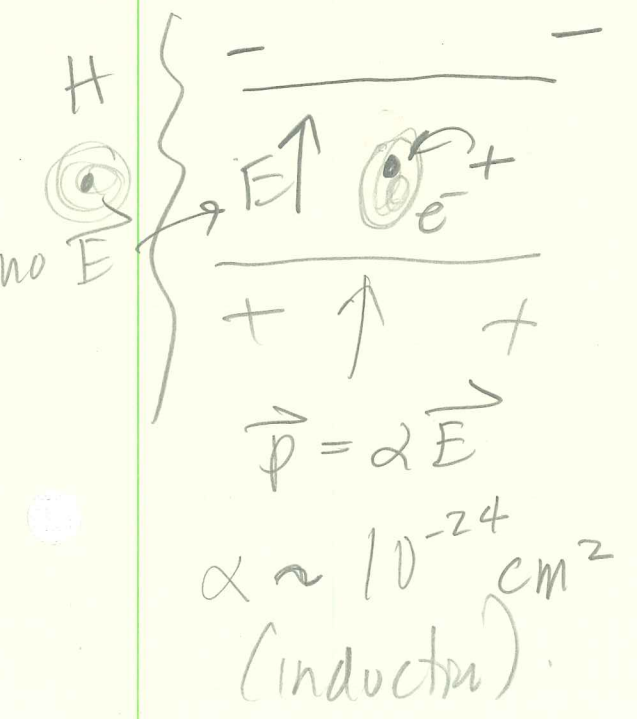 H
no E⃗
− −
E↑
+
e⁻
+ +
p⃗ = αE⃗
α ~ 10⁻²⁴ cm²
(induction).